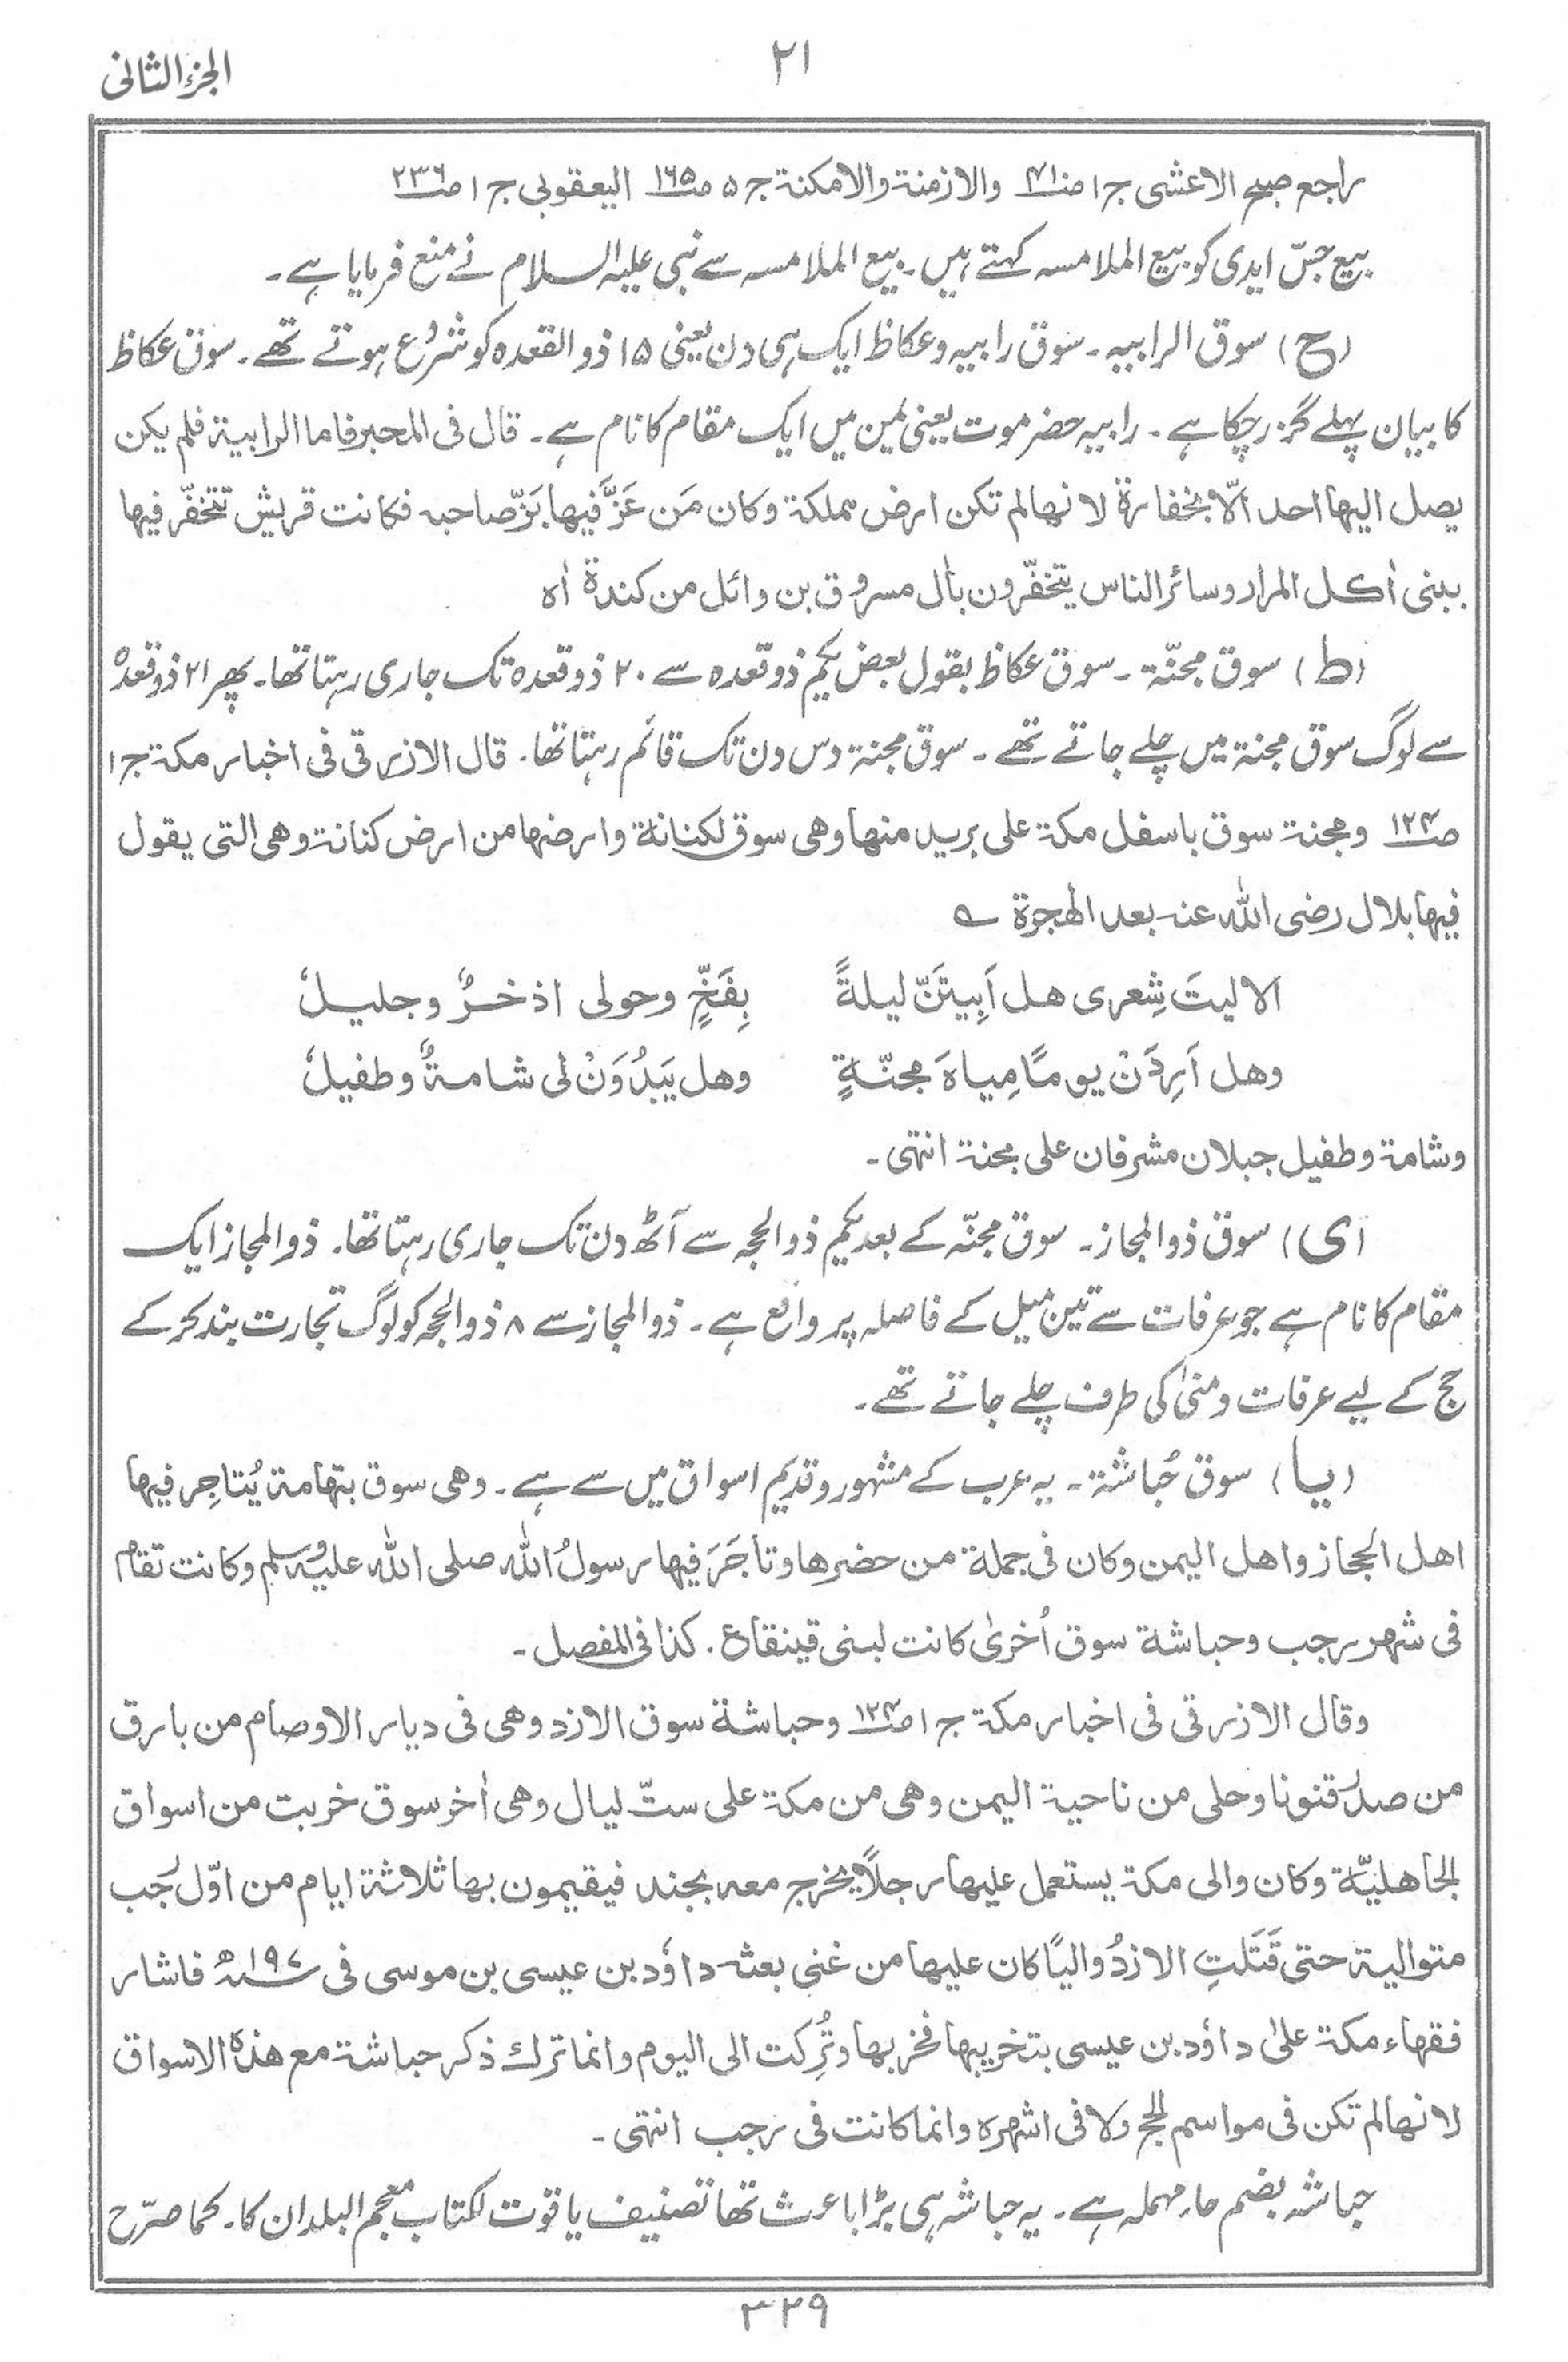 الجزء الثانی
۲۱
راجع صبح الاعشی ج ۱ ص۴۱۰ والازمنۃ والامکنۃ ج ۵ ص۱۶۵ الیعقوبی ج ۱ ص۲۳۶
بیع جسّ ایدی کو بیع الملامسہ کہتے ہیں۔ بیع الملامسہ سے نبی علیہ السلام نے منع فرمایا ہے۔
(ح) سوق الرابیہ۔ سوق رابیہ و عکاظ ایک ہی دن یعنی ۱۵ ذوالقعدہ کو شروع ہوتے تھے۔ سوق عکاظ
کا بیان پہلے گزر چکا ہے۔ رابیہ حضرموت یعنی یمن میں ایک مقام کا نام ہے۔ قال فی المحبر فاما الرابیۃ فلم یکن
یصل الیھا احد الّا بخفارۃ لانھا لم تکن ارض مملکۃ وکان مَن عَزَّ فیھا بَزّ صاحبہ فکانت قریش تتخفّر فیھا
ببنی اٰکل المرار وسائر الناس یتخفّرون باٰل مسروق بن وائل من کندۃ اٰہ
(ط) سوق مجنّۃ۔ سوق عکاظ بقول بعض یکم ذوقعدہ سے ۲۰ ذوقعدہ تک جاری رہتا تھا۔ پھر ۲۱ ذوقعدہ
سے لوگ سوق مجنۃ میں چلے جاتے تھے۔ سوق مجنۃ دس دن تک قائم رہتا تھا۔ قال الازرقی فی اخبار مکۃ ج ۱
ص۱۲۴ ومجنۃ سوق باسفل مکۃ علی برید منھا وھی سوق لکنانۃ وارضھا من ارض کنانۃ وھی التی یقول
فیھا بلال رضی اللہ عنہ بعد الھجرۃ ؎
الا لیتَ شِعری ھل اَبِیتَنَّ لیلۃً بِفَخٍّ وحولی اذخرٌ وجلیلٗ
وھل اَرِدَنْ یومًا مِیاہَ مجنّۃٍ وھل یَبدُوَنْ لی شامۃٌ وطفیلٗ
وشامۃ وطفیل جبلان مشرفان علی مجنۃ انتہی۔
(ی) سوق ذوالمجاز۔ سوق مجنّہ کے بعد یکم ذوالحجہ سے آٹھ دن تک جاری رہتا تھا۔ ذوالمجاز ایک
مقام کا نام ہے جو عرفات سے تین میل کے فاصلہ پر واقع ہے۔ ذوالمجاز سے ۸ ذوالحجہ کو لوگ تجارت بند کر کے
حج کے لیے عرفات و منیٰ کی طرف چلے جاتے تھے۔
(یا) سوق حُباشۃ۔ یہ عرب کے مشہور و قدیم اسواق میں سے ہے۔ وھی سوق بتھامۃ یُتاجِر فیھا
اھل الحجاز واھل الیمن وکان فی جملۃ من حضرھا وتأجَرَ فیھا رسولُ اللہ صلی اللہ علیہ وسلم وکانت تقام
فی شھر رجب وحباشۃ سوق اُخریٰ کانت لبنی قینقاع۔ کذا فی المفصل۔
وقال الازرقی فی اخبار مکۃ ج ۱ ص۱۲۴ وحباشۃ سوق الازد وھی فی دیار الاوصام من بارق
من صدر قنونا وحلی من ناحیۃ الیمن وھی من مکۃ علی ستّ لیال وھی اٰخر سوق خربت من اسواق
الجاھلیّۃ وکان والی مکۃ یستعمل علیھا رجلاً یخرج معہ بجند فیقیمون بھا ثلاثۃ ایام من اوّل رجب
متوالیۃ حتی قَتَلتِ الازدُ والیًا کان علیھا من غنی بعثہ داؤد بن عیسی بن موسی فی ۱۹۷ھ فاشار
فقھاء مکۃ علیٰ داؤد بن عیسی بتخریبھا فخربھا وتُرِکت الی الیوم وانما ترك ذکر حباشۃ مع ھذہ الاسواق
لانھا لم تکن فی مواسم الحج ولا فی اشھرہ وانما کانت فی رجب انتہی۔
حباشہ بضم حار مہملہ ہے۔ یہ حباشہ ہی بڑا باعث تھا تصنیف یاقوت لکتاب معجم البلدان کا۔ کما صرّح
۳۲۹